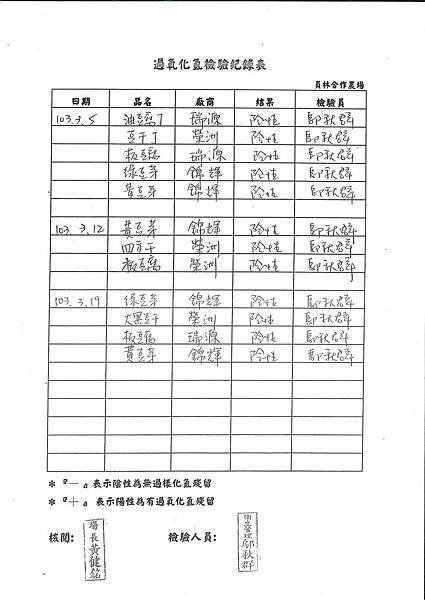 過氧化氫檢驗紀錄表
員林合作農場
日期 品名 廠商 結果 檢驗員
103.3.5 油豆腐丁 瑞源 陰性 邱秋群
豆干丁 榮洲 陰性 邱秋群
板豆腐 瑞源 陰性 邱秋群
綠豆芽 錦輝 陰性 邱秋群
黃豆芽 錦輝 陰性 邱秋群
103.3.12 黃豆芽 錦輝 陰性 邱秋群
四方干 榮洲 陰性 邱秋群
板豆腐 榮洲 陰性 邱秋群
103.3.19 綠豆芽 錦輝 陰性 邱秋群
大黑豆干 榮洲 陰性 邱秋群
板豆腐 瑞源 陰性 邱秋群
黃豆芽 錦輝 陰性 邱秋群
※『－』表示陰性為無過樣化氫殘留
※『＋』表示陽性為有過氧化氫殘留
核閱： 場長黃健銘 檢驗人員： 衛生管理邱秋群